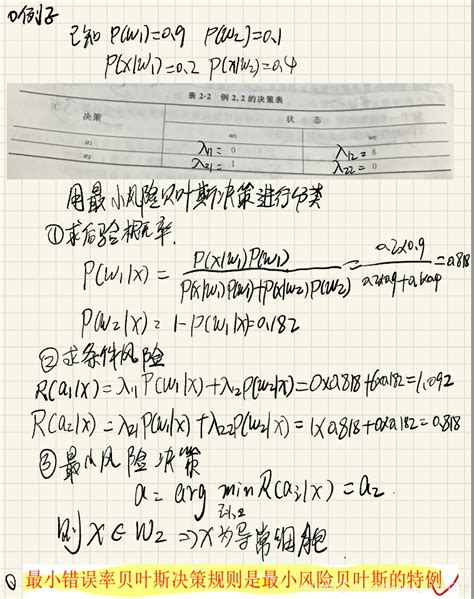 ①例子
已知 P(w₁)=0.9 P(w₂)=0.1
P(x|w₁)=0.2 P(x|w₂)=0.4
表 2-2 例 2.2 的决策表
决策 状态
ω₁ ω₂
α₁ λ₁₁= 0 λ₁₂= 6
α₂ λ₂₁= 1 λ₂₂= 0
用最小风险贝叶斯决策进行分类
①求后验概率.
P(w₁|x) = P(x|w₁)P(w₁) / P(x|w₁)P(w₁)+P(x|w₂)P(w₂) = 0.2x0.9 / 0.2x0.9+0.1x0.4 = 0.818
P(w₂|x) = 1-P(w₁|x)=0.182
②求条件风险
R(a₁|x) = λ₁₁P(w₁|x)+λ₁₂P(w₂|x) = 0x0.818+6x0.182=1.092
R(a₂|x) = λ₂₁P(w₁|x)+λ₂₂P(w₂|x) = 1x0.818+0x0.182=0.818
③最小风险决策
a = arg min R(aᵢ|x) = a₂
i=1,2
则 x ∈ w₂ ⇒ x为异常细胞
最小错误率贝叶斯决策规则是最小风险贝叶斯的特例